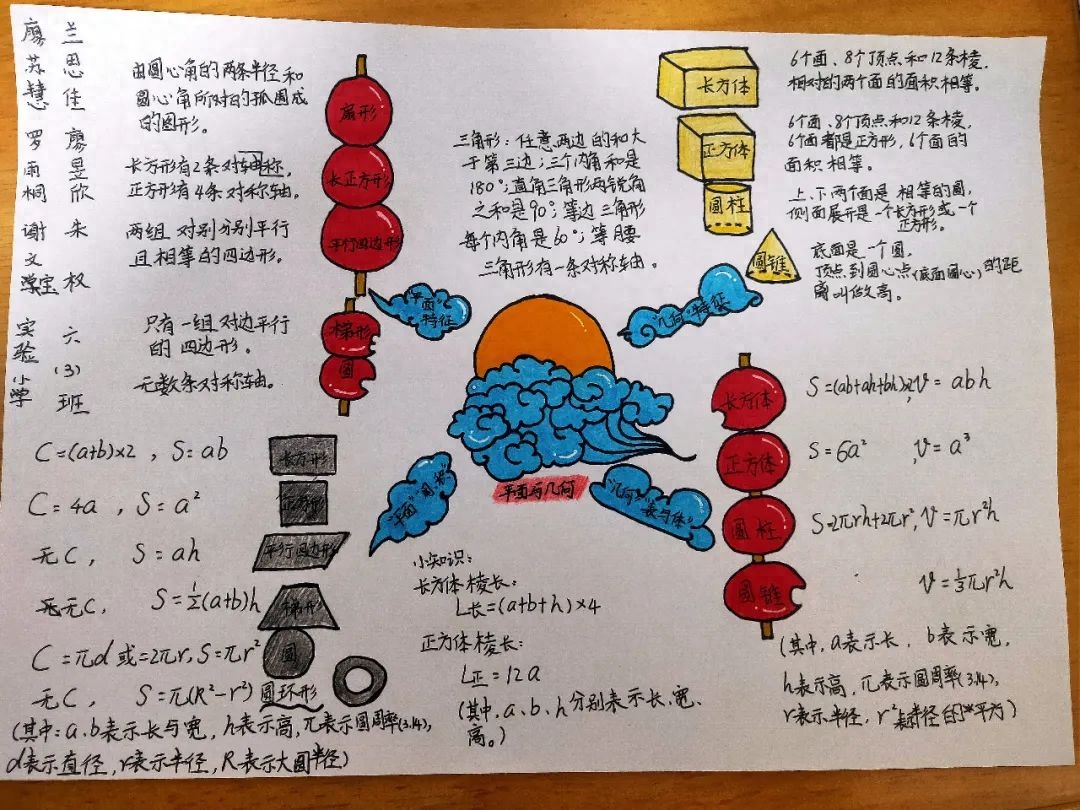 廖苏慧
兰思佳
罗雨桐
廖昱欣
谢文
朱
权
实验小学
六(3)班
由圆心角的两条半径和
圆心角所对的弧围成
的图形。
扇形
长方形有2条对称轴,
正方形有4条对称轴。
长正方形
两组对别分别平行
且相等的四边形。
平行四边形
只有一组对边平行
的四边形。
梯形
无数条对称轴。
圆
"平面"
特征
三角形:任意两边的和大
于第三边;三个内角和是
180°;直角三角形两锐角
之和是90°;等边三角形
每个内角是60°;等腰
三角形有一条对称轴。
长方体
6个面、8个顶点和12条棱,
相对的两个面的面积相等。
正方体
6个面、8个顶点和12条棱,
6面都是正方形,6个面的
面积相等。
圆柱
上、下两个面是相等的圆,
侧面展开是一个长方形或一个
正方形。
圆锥
底面是一个圆,
顶点到圆心点(底面圆心)的距
离叫做高。
"几何"特征
平面与几何
C=(a+b)×2,S=ab
长方形
C=4a,S=a²
正方形
无C,S=ah
平行四边形
无C,S=½(a+b)h
梯形
C=πd或=2πr,S=πr²
圆
无C,S=π(R²-r²)圆环形
(其中:a、b表示长与宽,h表示高,π表示圆周率(3.14),
d表示直径,r表示半径,R表示大圆半径)
"平面"
小知识:
长方体棱长:
L长=(a+b+h)×4
正方体棱长:
L正=12a
(其中,a、b、h分别表示长、宽、
高。)
"几何"
"表与体"
长方体
S=(ab+ah+bh)×2,V=abh
正方体
S=6a²,V=a³
圆柱
S=2πrh+2πr²,V=πr²h
圆锥
V=⅓πr²h
(其中,a表示长,b表示宽,
h表示高,π表示圆周率(3.14),
r表示半径,r²表示半径的平方)